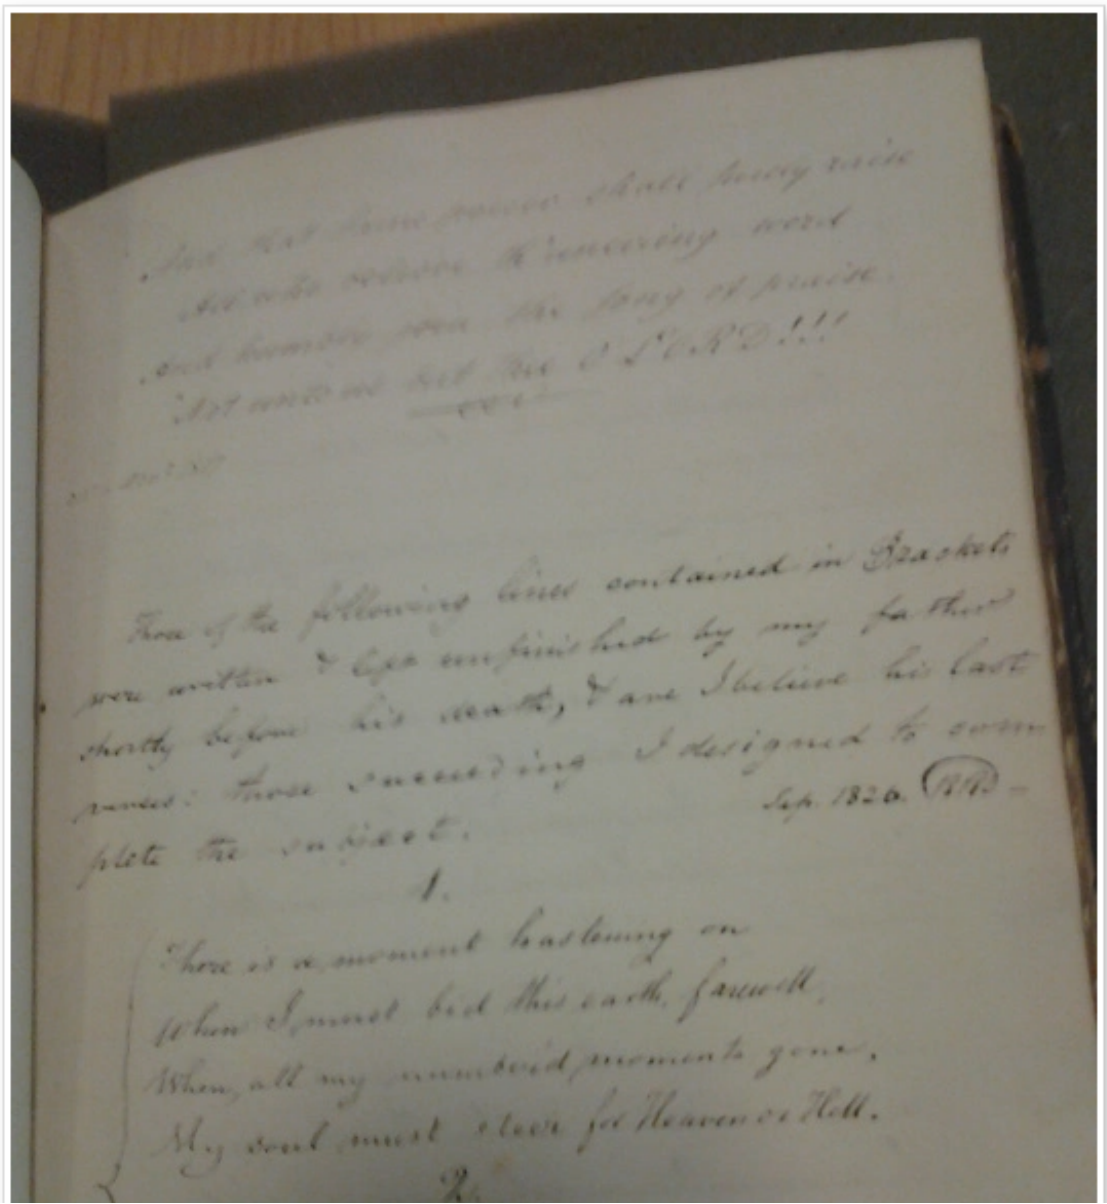 And that some voices shall truly raise
All who believe th' unerring word
And humbly join the song of praise.
"Not unto us but thee O LORD!!!
Those of the following lines contained in Brackets
were written & left unfinished by my father
shortly before his death, & are I believe his last
verses: those succeeding I designed to com-
plete the subject.
Sep. 1826. RR
1.
There is a moment hastening on
When I must bid this earth, farewell,
When, all my numberid moments gone,
My soul must steer for Heaven or Hell.
2.